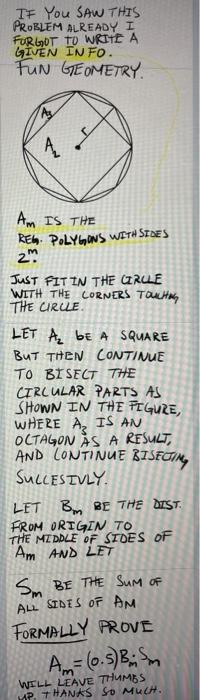 IF YOU SAW THIS
PROBLEM ALREADY I
FORGOT TO WRITE A
GIVEN INFO.
FUN GEOMETRY.
A₃
r
A₂
Am IS THE
REG. POLYGONS WITH SIDES
2^m.
JUST FIT IN THE CIRCLE
WITH THE CORNERS TOUCHING
THE CIRCLE.
LET A₂ bE A SQUARE
BUT THEN CONTINUE
TO BISECT THE
CIRCULAR PARTS AS
SHOWN IN THE FIGURE,
WHERE A₃ IS AN
OCTAGON AS A RESULT,
AND CONTINUE BISECTING
SUCCESIVLY.
LET Bm BE THE DIST.
FROM ORIGIN TO
THE MIDDLE OF SIDES OF
Am AND LET
Sm BE THE SUM OF
ALL SIDES OF AM
FORMALLY PROVE
Am=(0.5)Bm·Sm
WILL LEAVE THUMBS
UP. THANKS SO MUCH.